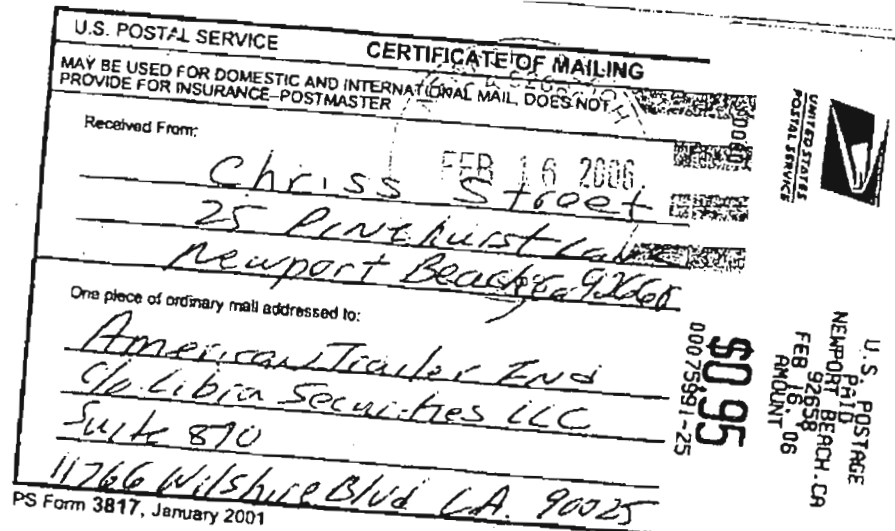 U.S. POSTAL SERVICE
CERTIFICATE OF MAILING
MAY BE USED FOR DOMESTIC AND INTERNATIONAL MAIL, DOES NOT
PROVIDE FOR INSURANCE-POSTMASTER
Received From:
FEB 16 2006
Chriss Street
25 Pinehurst Lane
Newport Beach Ca 92660
One piece of ordinary mail addressed to:
American Trailer Ind
c/o Libra Securities LLC
Suite 870
11766 Wilshire Blvd LA. 90025
PS Form 3817, January 2001
UNITED STATES
POSTAL SERVICE
0000
U.S. POSTAGE
PAID
NEWPORT BEACH.CA
92658
FEB 16.'06
AMOUNT
$0.95
00075991-25